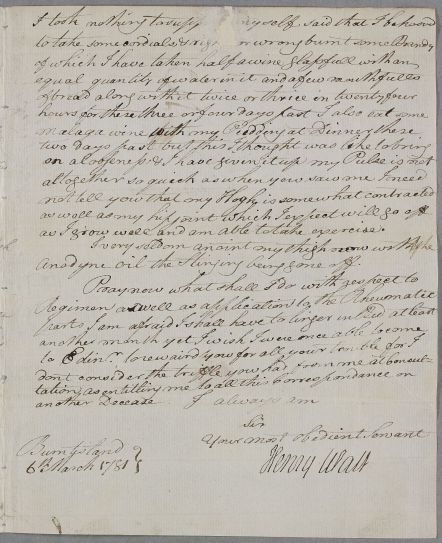 I took nothing myself said that I behoved
to take some cordials & right or wrong burnt some Brandy
of which I have taken half a wine glassfull with an
equal quantity of water in it and a few mouthfulls
of bread along with it twice or thrice in twenty four
hours for these three or four days past I also eat some
malaga wine with my Pudding at Dinner these
two days past but this I thought was like to bring
on a looseness & I have given it up my Pulse is not
altogether so quick as when you saw me I need
not tell you that my Hough is somewhat contracted
as well as my hip joint which I expect will go off
as I grow well and am able to take exercise.
I very seldom anoint my thigh now with the
Anodyne oil the Stinging being gone off.
Pray now what shall I do with respect to
Regimen as well as application to the Rheumatic
parts I am afraid I shall have to linger in Bed at least
another month yet I wish I were once able to come
to Edinr. to reward you for all your trouble for I
dont consider the trifle you had from me at consul-
tation, as entitling me to all this Correspondence on
another Disease I always am
Sir
Your most obedient Servant
Henry Watt
Burntisland
6th March 1781